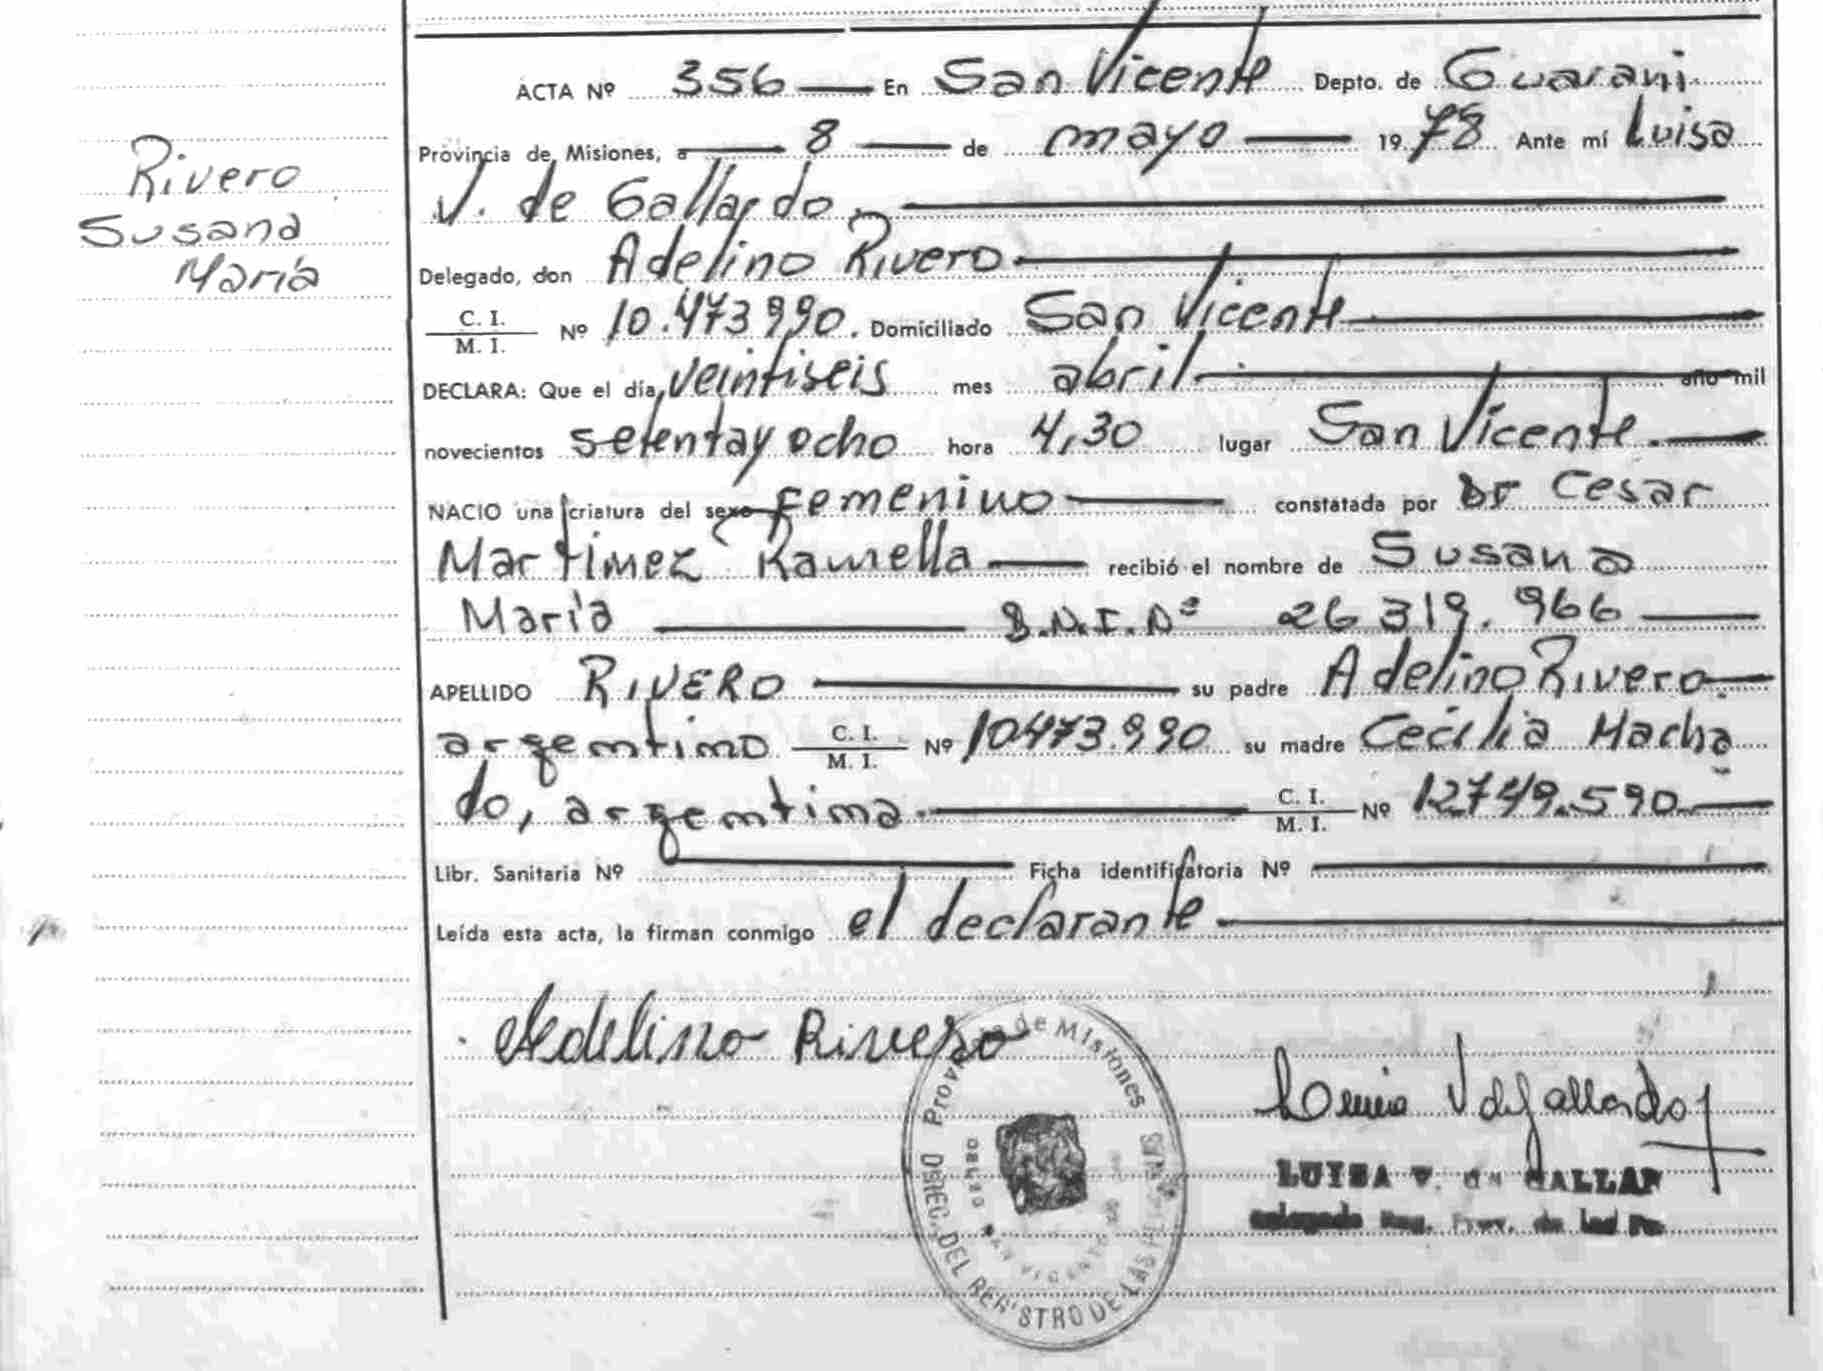 Rivero
Susana
María
ACTA Nº 356 En San Vicente Depto. de Guarani
Provincia de Misiones, a 8 de mayo 1978 Ante mí Luisa
V. de Gallardo
Delegado, don Adelino Rivero
C. I.
M. I. Nº 10.473.990. Domiciliado San Vicente
DECLARA: Que el día veintiseis mes abril año mil
novecientos setenta y ocho hora 4,30 lugar San Vicente.
NACIO una criatura del sexo Femenino constatada por Dr Cesar
Martinez Ramella recibió el nombre de Susana
María D.N.I. Nº 26.319.966
APELLIDO RIVERO su padre Adelino Rivero
argentino C. I.
M. I. Nº 10473.990 su madre Cecilia Macha
do, argentina. C. I.
M. I. Nº 12749.590
Libr. Sanitaria Nº Ficha identificatoria Nº
Leída esta acta, la firman conmigo el declarante
Adelino Rivero
Provincia de Misiones
DEL REGISTRO DE LAS
SAN VICENTE
Luisa V de Gallardo
LUISA V. DE GALLAR